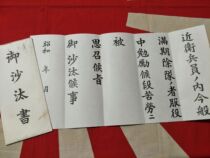 近衛兵員ノ内今般
満期除隊ノ者服役
中勉励候段苦労ニ
被
思召候旨
御沙汰候事
昭和 年 月
御沙汰書